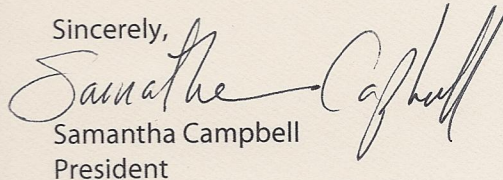 Sincerely,
Samantha Campbell
Samantha Campbell
President